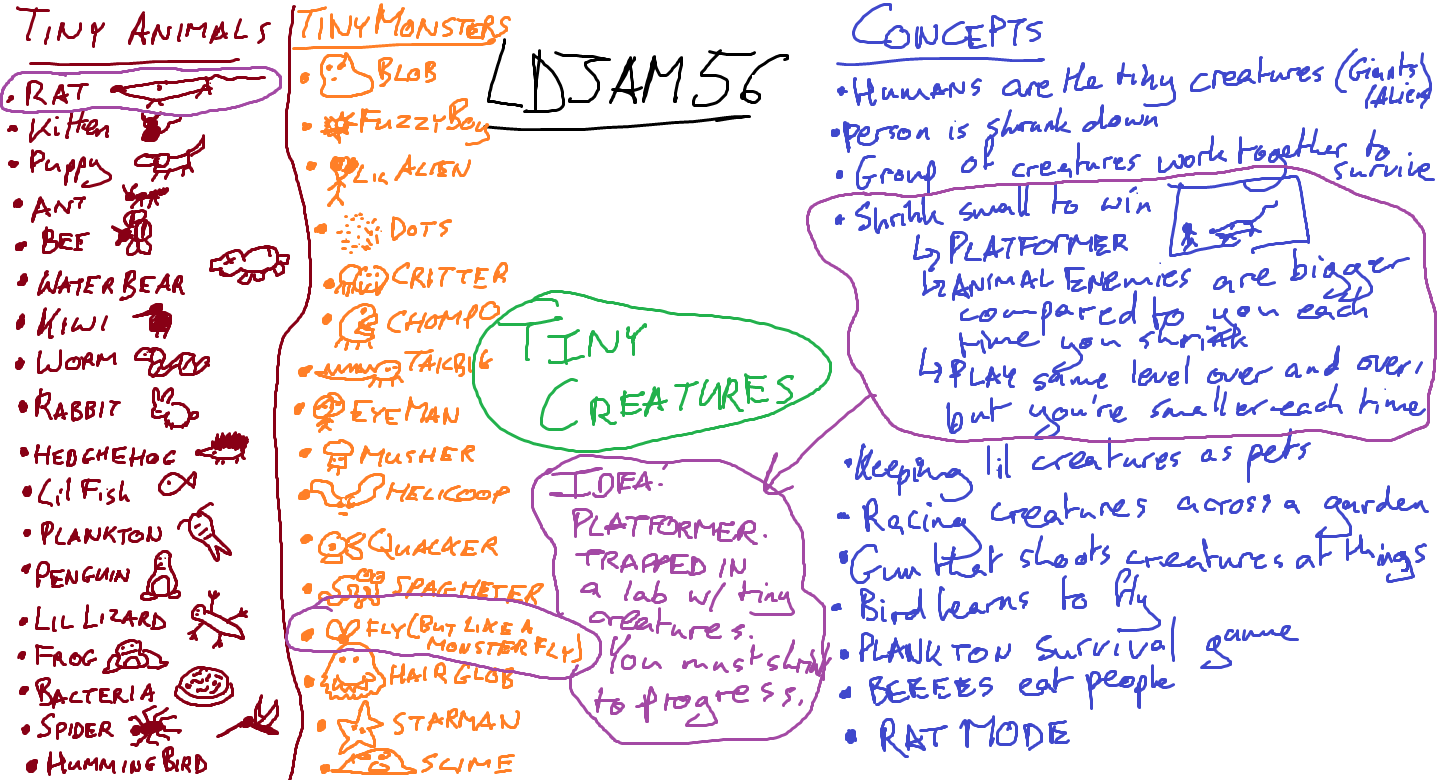 TINY ANIMALS
• RAT
• Kitten
• Puppy
• ANT
• BEE
• WATER BEAR
• KIWI
• WORM
• RABBIT
• HEDGHEHOG
• Lil Fish
• PLANKTON
• PENGUIN
• LIL LIZARD
• FROG
• BACTERIA
• SPIDER
• HUMMINGBIRD
TINY MONSTERS
• BLOB
• FUZZYBOY
• LIL ALIEN
• DOTS
• CRITTER
• CHOMPO
• TAILBUG
• EYEMAN
• MUSHER
• HELICOOP
• QUACKER
• SPAGHETER
• FLY (BUT LIKE A
MONSTER FLY)
• HAIR GLOB
• STARMAN
• SLIME
LDJAM 56
TINY
CREATURES
IDEA:
PLATFORMER.
TRAPPED IN
a lab w/ tiny
creatures.
You must shrink
to progress.
CONCEPTS
• Humans are the tiny creatures (Giants/
Aliens)
• person is shrunk down
• Group of creatures work together to
survive
• Shrink small to win
↳ PLATFORMER
↳ ANIMAL ENEMIES are bigger
compared to you each
time you shrink
↳ PLAY same level over and over,
but you're smaller each time
• Keeping lil creatures as pets
• Racing creatures across a garden
• Gun that shoots creatures at things
• Bird learns to fly
• PLANKTON survival game
• BEEEES eat people
• RAT MODE